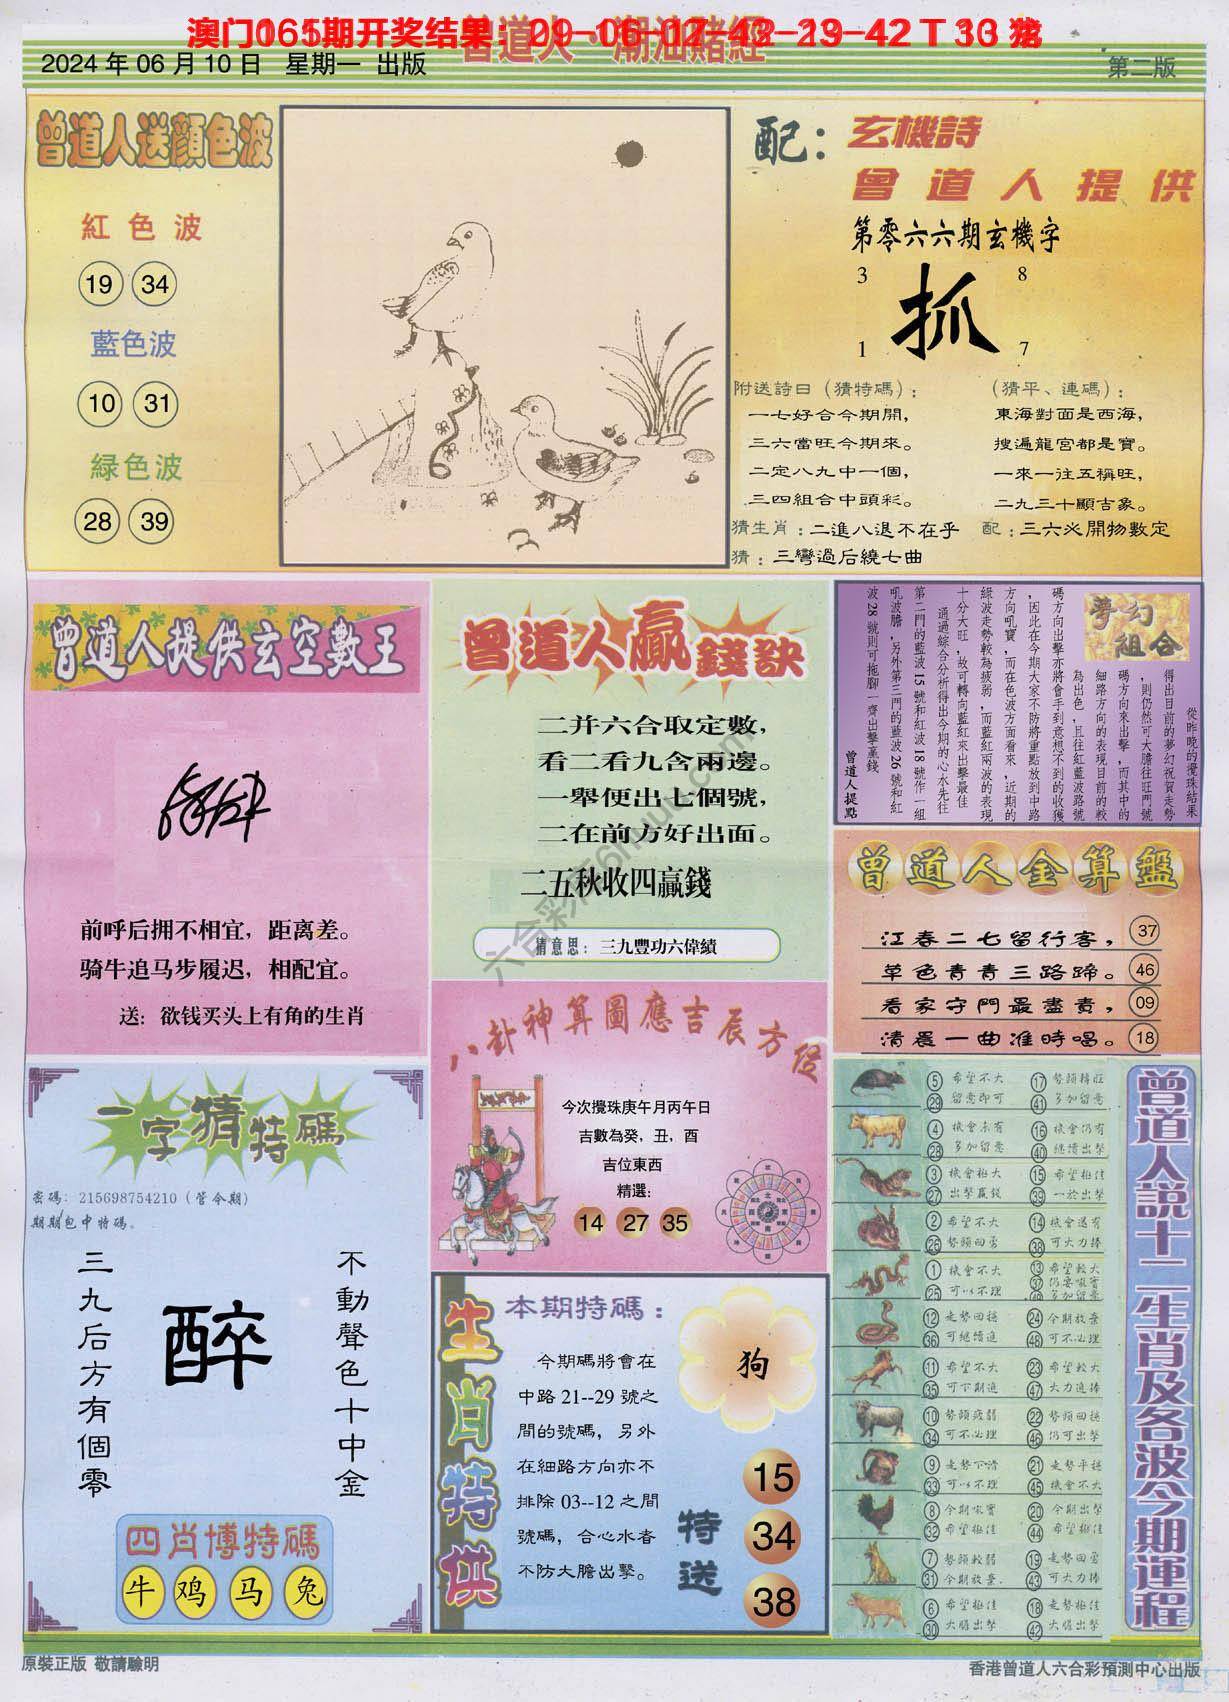 2024 年 06 月 10 日 星期一 出版
曾道人·潮汕賭經
第二版
曾道人送顏色波
紅色波
19 34
藍色波
10 31
緑色波
28 39
配：玄機詩
曾道人提供
第零六六期玄機字
3 8
抓
1 7
附送詩日（猜特碼）：
一七好合今期開，
三六當旺今期來。
二定八九中一個，
三四組合中頭彩。
（猜平、連碼）：
東海對面是西海，
搜遍龍宮都是寶。
一來一往五稱旺，
二九三十顯吉象。
猜生肖：二進八退不在乎
配：三六必開物數定
猜：三彎過后繞七曲
曾道人提供玄空數王
前呼后拥不相宜，距离差。
骑牛追马步履迟，相配宜。
送：欲钱买头上有角的生肖
曾道人贏錢訣
二并六合取定數，
看二看九含兩邊。
一舉便出七個號，
二在前方好出面。
二五秋收四贏錢
猜意思：三九豐功六偉績
夢幻組合
從昨晚的攪珠結果
得出目前的夢幻祝賀走勢
，則仍然可大膽往旺門號
碼方向來出擊，而其中的
細路方向的表現目前的較
為出色，且往紅藍波路號
碼方向出擊亦將會手到意想不到的收獲
，因此在今期大家不防將重點放到中路
方向吼寶，而在色波方面看來，近期的
綠波走勢較為疲弱，而藍紅兩波的表現
十分大旺，故可轉向藍紅來出擊最佳
通過綜合分析得出今期的心水先往
第二門的藍波 15 號和紅波 18 號作一組
吼波膽，另外第三門的藍波 26 號和紅
波 28 號則可拖腳一齊出擊贏錢
曾道人提點
曾道人金算盤
江春二七留行客， 37
草色青青三路蹄。 46
看家守門最盡責， 09
清晨一曲准時唱。 18
八卦神算圖應吉辰方位
今次攪珠庚午月丙午日
吉數為癸，丑，酉
吉位東西
精選：
14 27 35
一字猜特碼
密碼：215698754210（管今期）
期期包中特碼。
三九后方有個零
醉
不動聲色十中金
四肖博特碼
牛 鸡 马 兔
生肖特供
本期特碼：
狗
今期碼將會在
中路 21--29 號之
間的號碼，另外
在細路方向亦不
排除 03--12 之間
號碼，合心水者
不防大膽出擊。
特送
15
34
38
曾道人説十二生肖及各波今期運程
5 希望不大 17 勢頭轉旺
29 留意即可 41 多加留意
4 機會未有 16 機會仍有
28 多加留意 40 繼續出擊
3 機會極大 15 希望極佳
27 出擊贏錢 39 一於出擊
2 希望不大 14 機會還有
26 勢頭回勇 38 可大力捧
1 機會不大 13 希望較大
25 可以不理
12 走勢回穩 24 今期放棄
36 可繼續追 48 可不必理
11 希望不大 23 希望較大
35 可下期追 47 大力追捧
10 勢頭疲弱 22 勢頭回穩
34 可不必理 46 仍可出擊
9 走勢下滑 21 走勢平穩
33 可以不理 45 機會不大
8 今期吼寶 20 今期出擊
32 希望極佳 44 希望極佳
7 勢頭較弱 19 走勢回勇
31 今期放棄. 43 可大力捧
6 希望極佳 18 走勢極佳
30 大膽出擊 42 大膽出擊
原裝正版 敬請驗明
香港曾道人六合彩預測中心出版